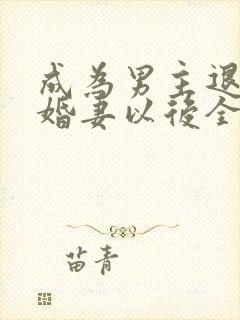 成為男主退
婚妻以後全
苗青